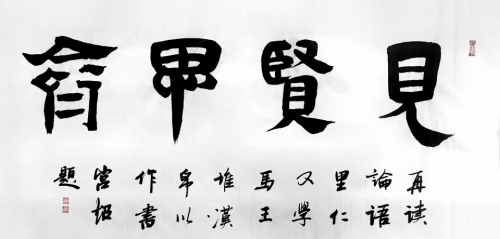 見賢思齊
再读
論語
里仁
又學
馬王
堆漢
帛以
作書
題